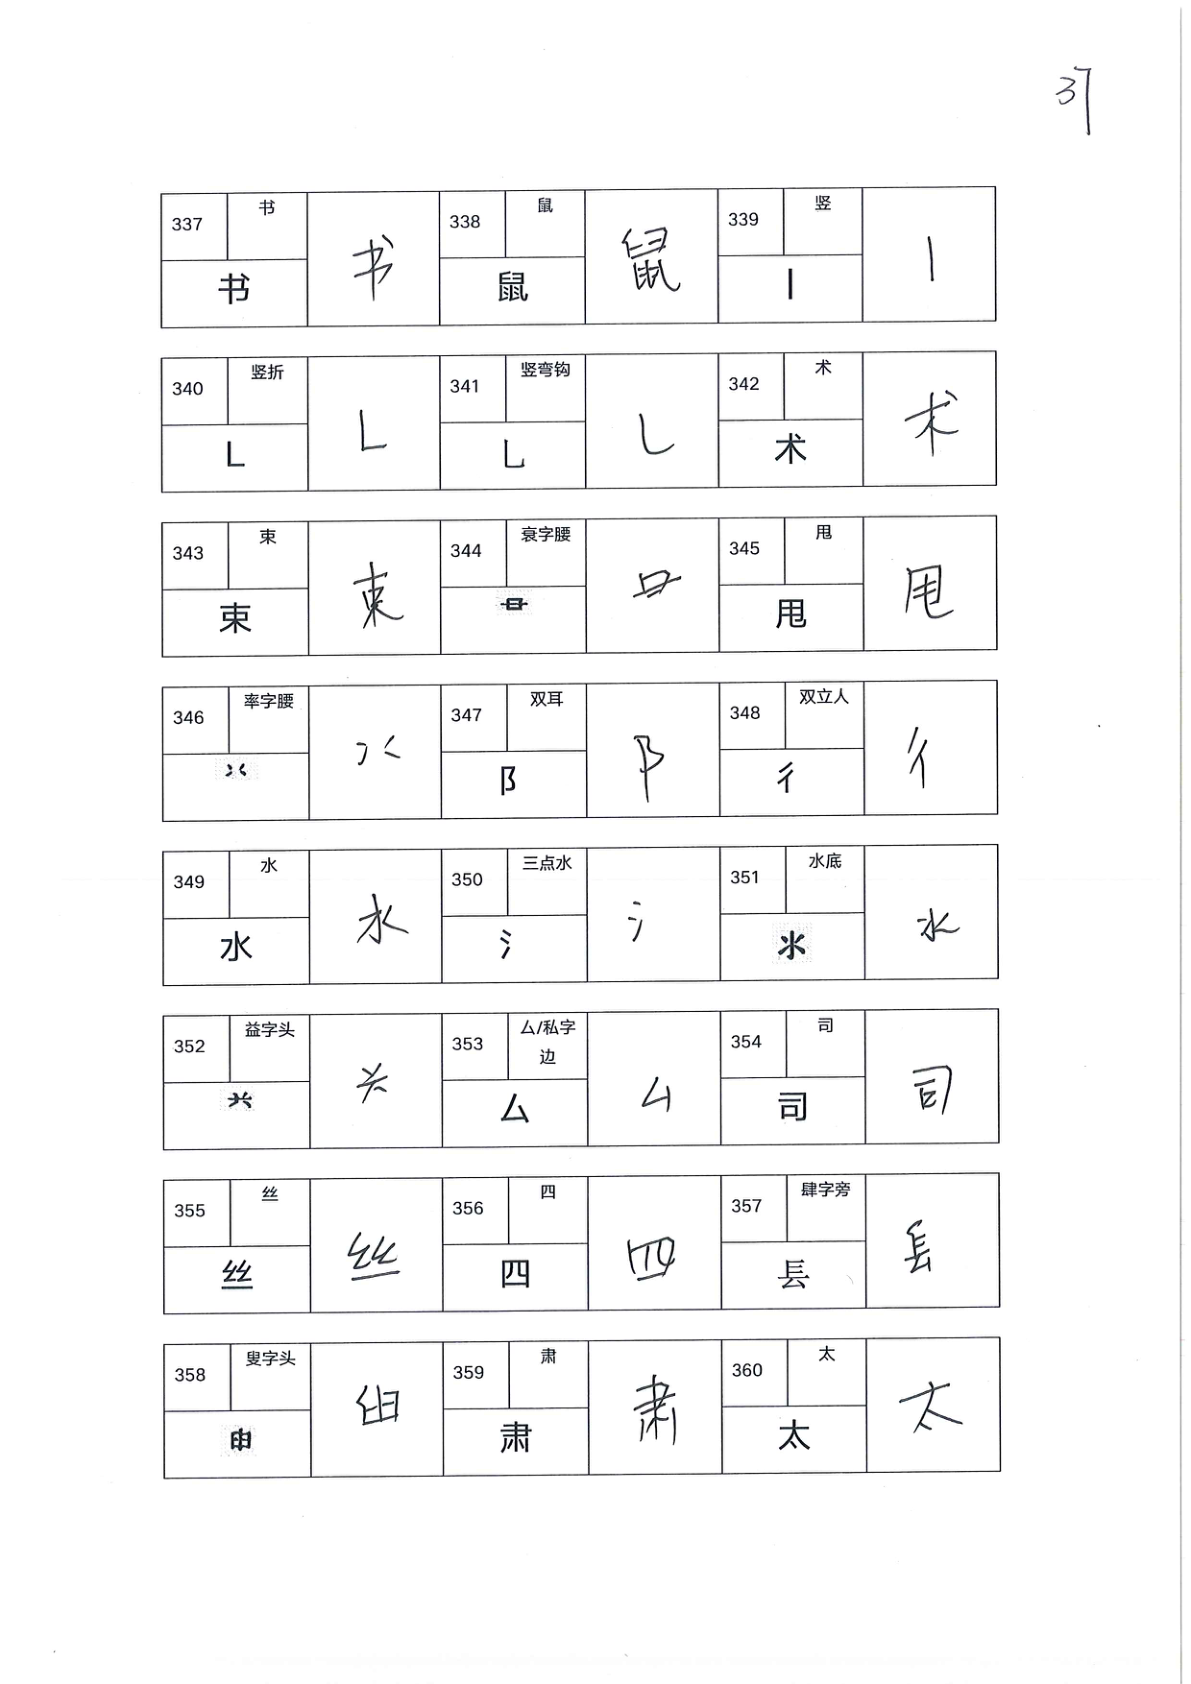 37
337 书 书 338 鼠 鼠 339 竖 丨
书 鼠 丨
340 竖折 ㇄ 341 竖弯钩 乚 342 术 术
㇄ 乚 术
343 束 束 344 衰字腰 345 甩 甩
束 甩
346 率字腰 347 双耳 阝 348 双立人 彳
阝 彳
349 水 水 350 三点水 氵 351 水底 氺
水 氵 氺
352 益字头 353 厶/私字边 厶 354 司 司
厶 司
355 丝 丝 356 四 四 357 肆字旁 镸
丝 四 镸
358 叟字头 359 肃 肃 360 太 太
肃 太